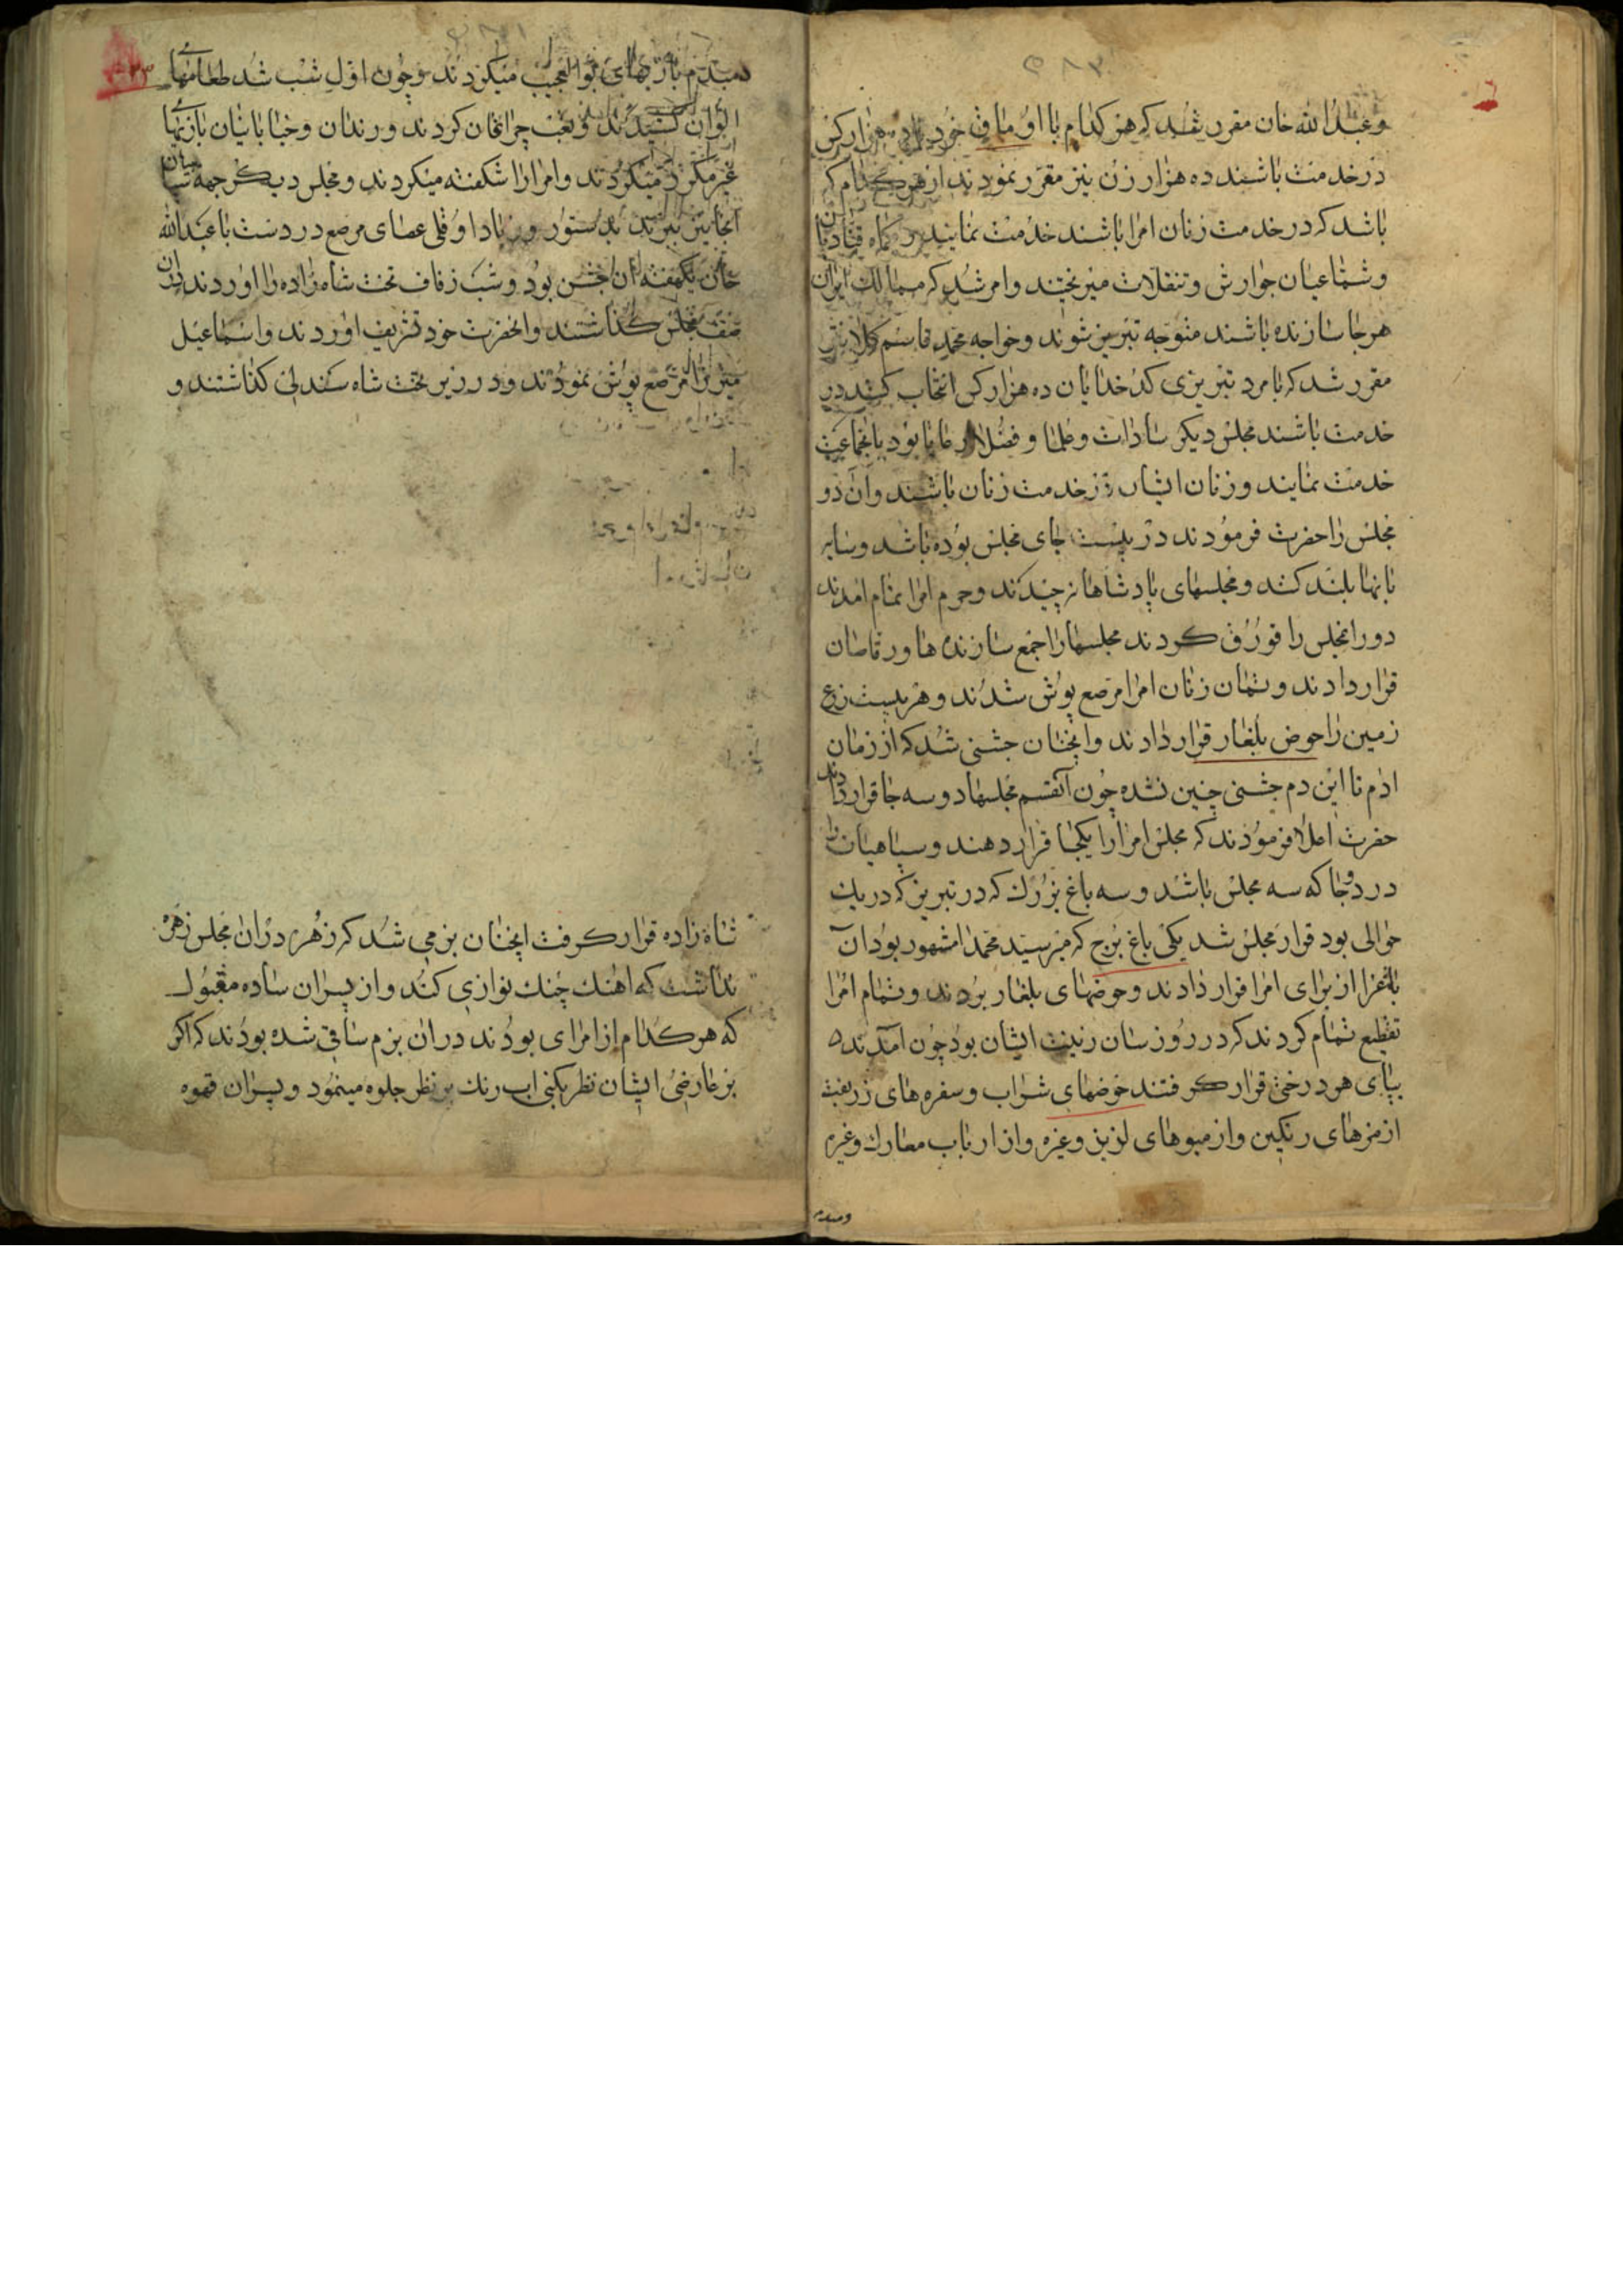 وعبدالله خان مقرر شد که هر کدام با او مافی خود هزار کس
در خدمت باشند ده هزار زن نیز مقرر نمودند از هر کدام که
باشد که در خدمت زنان امرا باشند خدمت نمایند
وشماعیان جوارش وتنقلات میریختند وامر شد که ممالک ایران
هر جا سازنده باشند متوجه تبریز شوند وخواجه محمد قاسم کلانتر
مقرر شد که با مرد تبریزی کدخدایان ده هزار کس انتخاب کنند در
خدمت باشند مجلس دیکر سادات وعلما وفضلا بود
خدمت نمایند وزنان ایشان در خدمت زنان باشند وآن دو
مجلس را حضرت فرمودند در بیست جای مجلس بوده باشد وسایه
بانها بلند کنند ومجلسهای پادشاهانه چیدند وحرم امرا تمام امدند
دور امجلس را قورق کردند مجلسها را جمع سازنده ها ورقاصان
قرار دادند وتمان زنان امرا مرصع پوش شدند وهر بیست زرع
زمین را حوض بلغار قرار دادند وانچنان جشنی شد که از زمان
ادم تا این دم جشنی چنین نشده چون آنقسم مجلسها دو سه جا قرار دادند
حضرت اعلا فرمودند که مجلس امرا را یکجا قرار دهند وسپاهیان را
در دوجا که سه مجلس باشد وسه باغ بزرک که در تبریز که در یک
حوالی بود قرار مجلس شد یکی باغ برج که میر سید محمدا مشهور بود آن
باغرا از برای امرا قرار دادند وحوضهای بلغار بردند وتمام امرا
تقطیع تمام کردند که در روز سان زینت ایشان بود چون آمدند
بپای هر درختی قرار کرفتند خوضهای شراب وسفره های زربفت
از مزهای رنکین واز میوهای لزیز وغیره واز ارباب معارک وغیره
ومیدم
دمبدم بازیهای بوالعجیب میکردند وچون اول شب شد طعامهای
الوان کشیدند وبعد چراغان کردند ورندان وخیابانیان بازیهای
غیر مکرر میکردند وامرا را شکفته میکردند ومجلس دیکر جهة سپاهیان
انجا نیز بدستور وزیاد اوغلی عصای مرصع در دست با عبدالله
خان یکهفته ان جشن بود وشب زفاف تخت شاه زاده را اوردند در آن
صف مجلس کذاشتند وانحضرت خود تشریف اوردند واسماعیل
میرزا را مرصع پوش نمودند ودر زیر تخت شاه سندلی کذاشتند و
شاه زاده قرار کرفت انچنان بزمی شد که زهره در آن مجلس زهره
نداشت که اهنک چنک نوازی کند واز پسران ساده مقبول
که هر کدام از امرای بودند در ان بزم ساقی شده بودند که اکر
بر عارض ایشان نظر یکنی اب رنک بر نظر جلوه مینمود وپسران قهوه